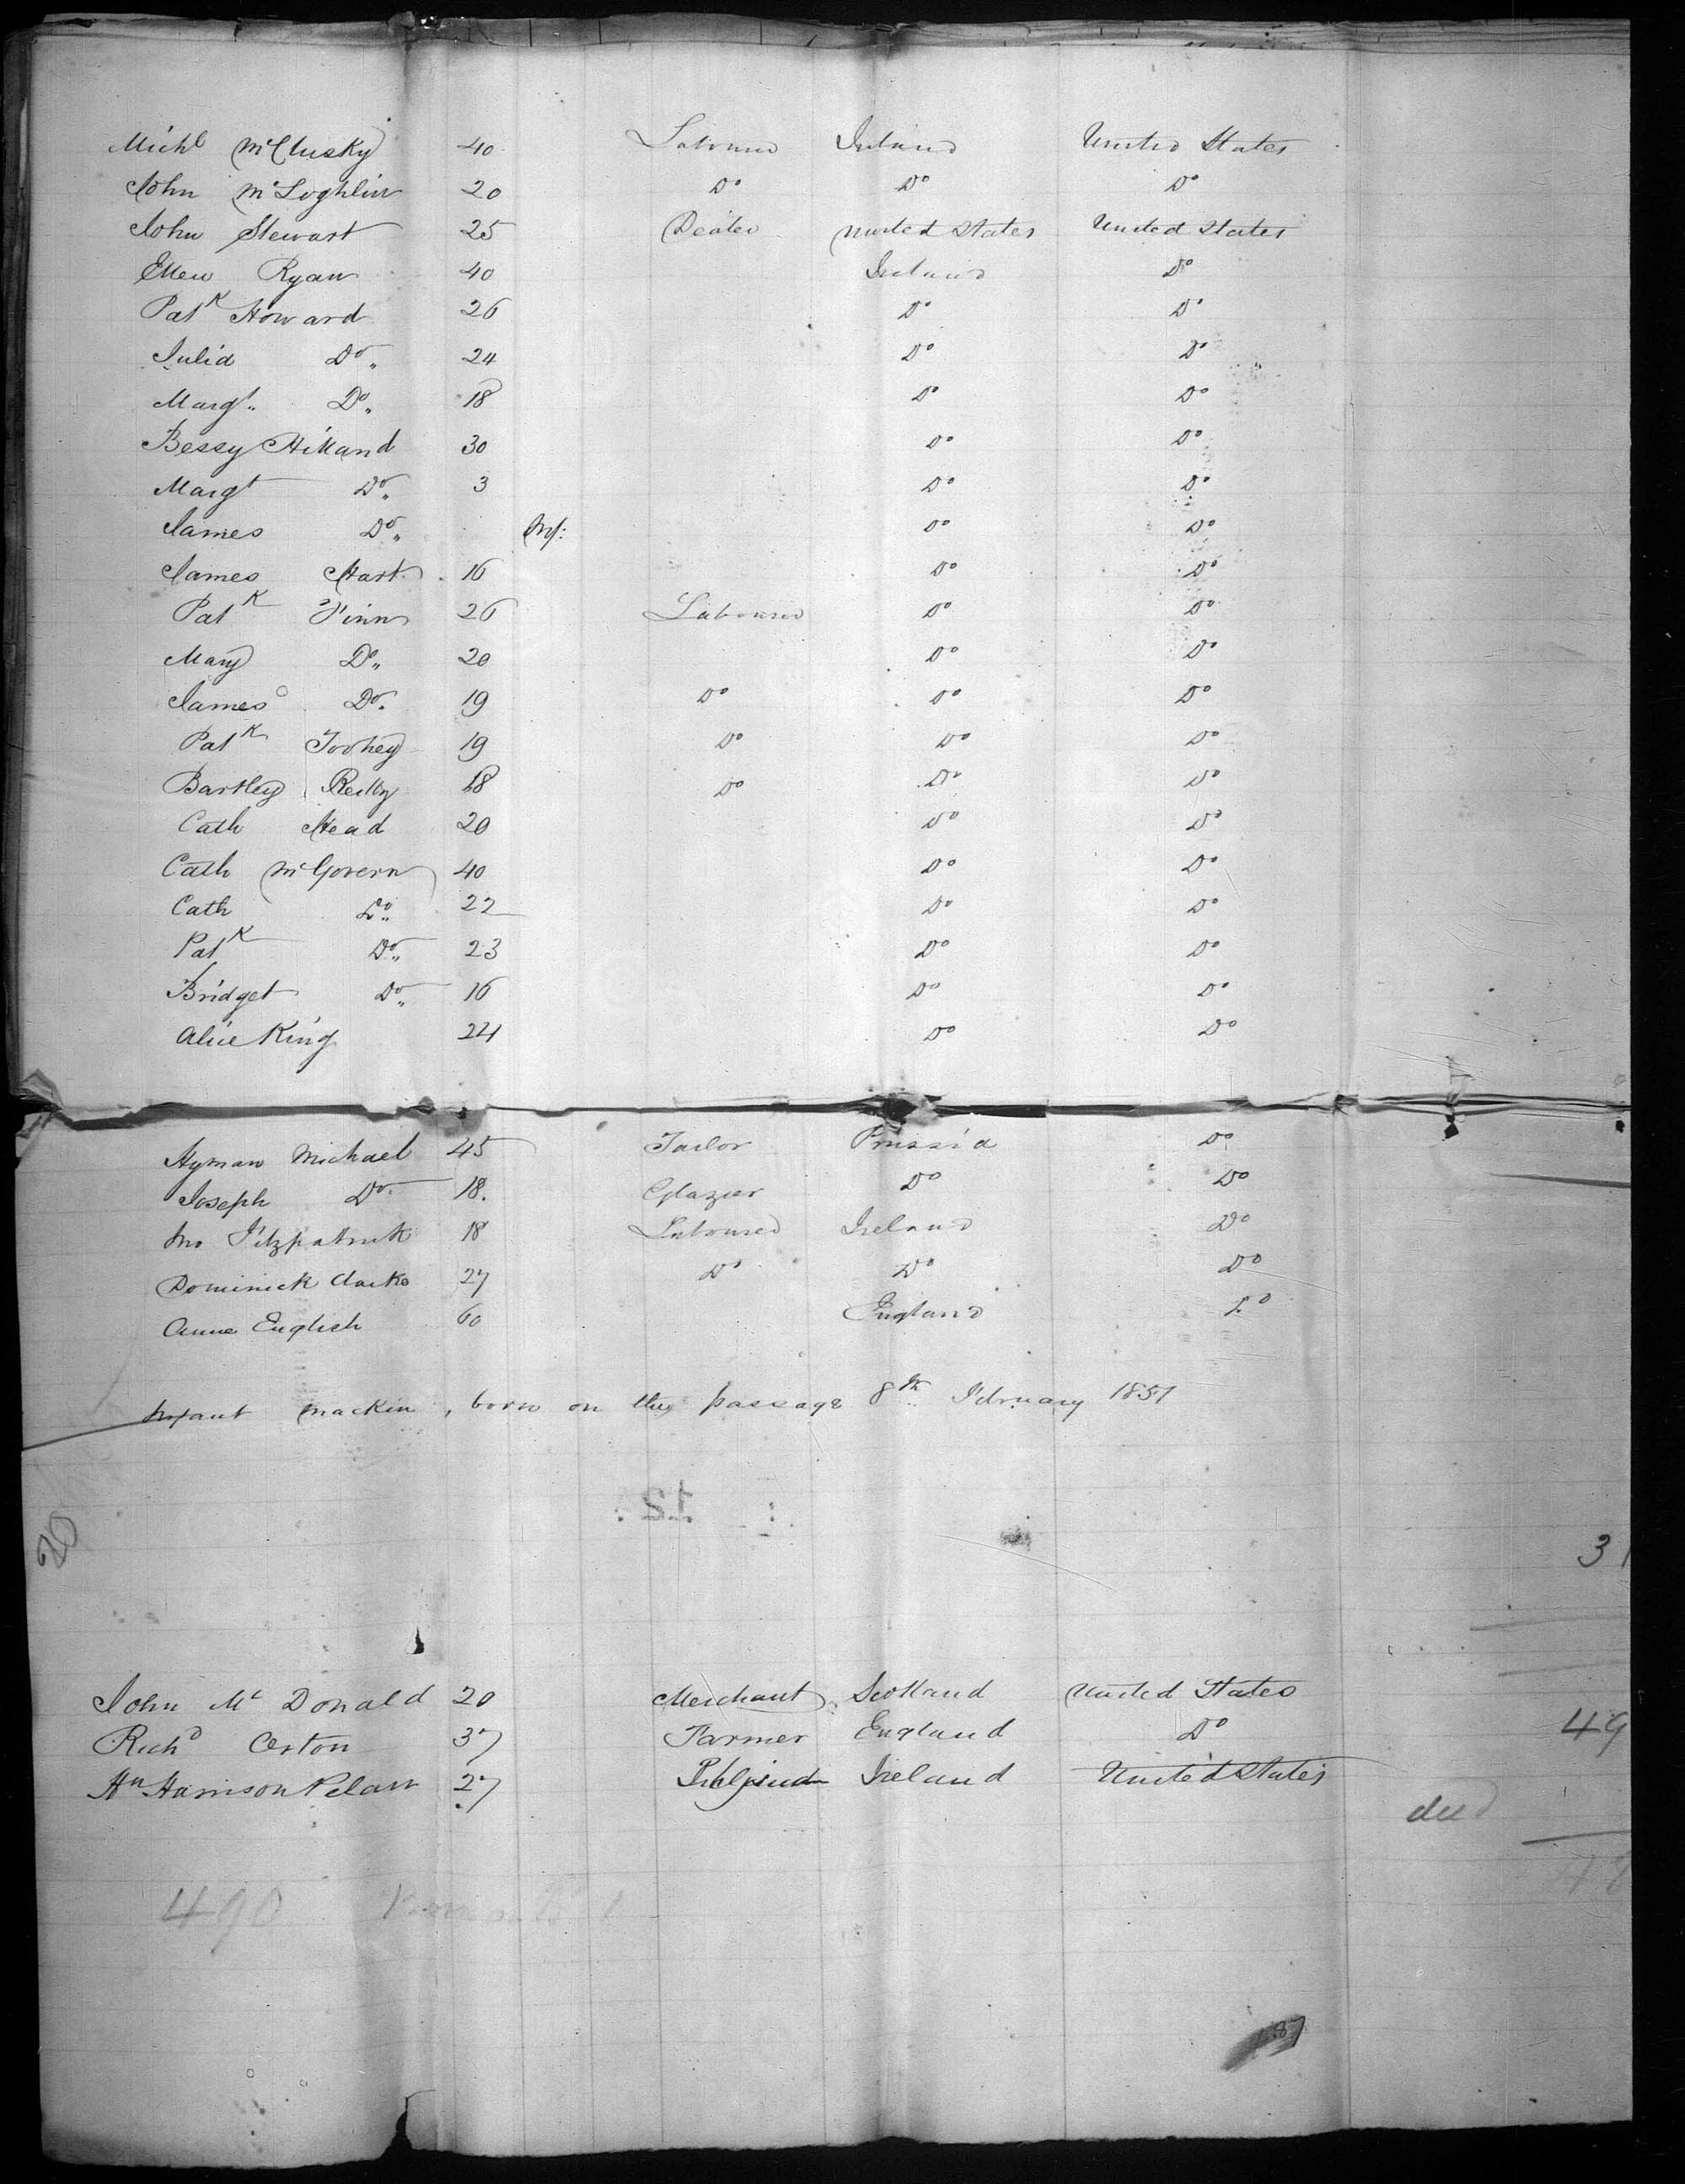 Michl McClusky 40 Labourer Ireland United States
John McLoghlin 20 Do Do Do
John Stewart 25 Dealer United States United States
Ellen Ryan 40 Ireland Do
Patk Howard 26 Do Do
Julia Do„ 24 Do Do
Margt„ Do„ 18 Do Do
Bessy Hilland 30 Do Do
Margt Do„ 3 Do Do
James Do„ Inf: Do Do
James Hart 16 Do Do
Patk Finn 26 Labourer Do Do
Mary Do„ 20 Do Do
James Do„ 19 Do Do Do
Patk Toohey 19 Do Do Do
Bartley Reilly 18 Do Do Do
Cath Head 20 Do Do
Cath McGovern 40 Do Do
Cath Do„ 22 Do Do
Patk Do„ 23 Do Do
Bridget Do„ 16 Do Do
Alice King 24 Do Do
Hyman Michael 45 Tailor Prussia Do
Joseph Do 18. Glazier Do Do
Jno Fitzpatrick 18 Labourer Ireland Do
Dominick Clarke 27 Do Do Do
Anne English 60 England Do
Infant Mackin, born on the passage 8th February 1851
12
20
31
John Mc Donald 20 Merchant Scotland United States
Richd Orton 37 Farmer England Do
49
Hn Harrison 27 Ireland United States
died
490